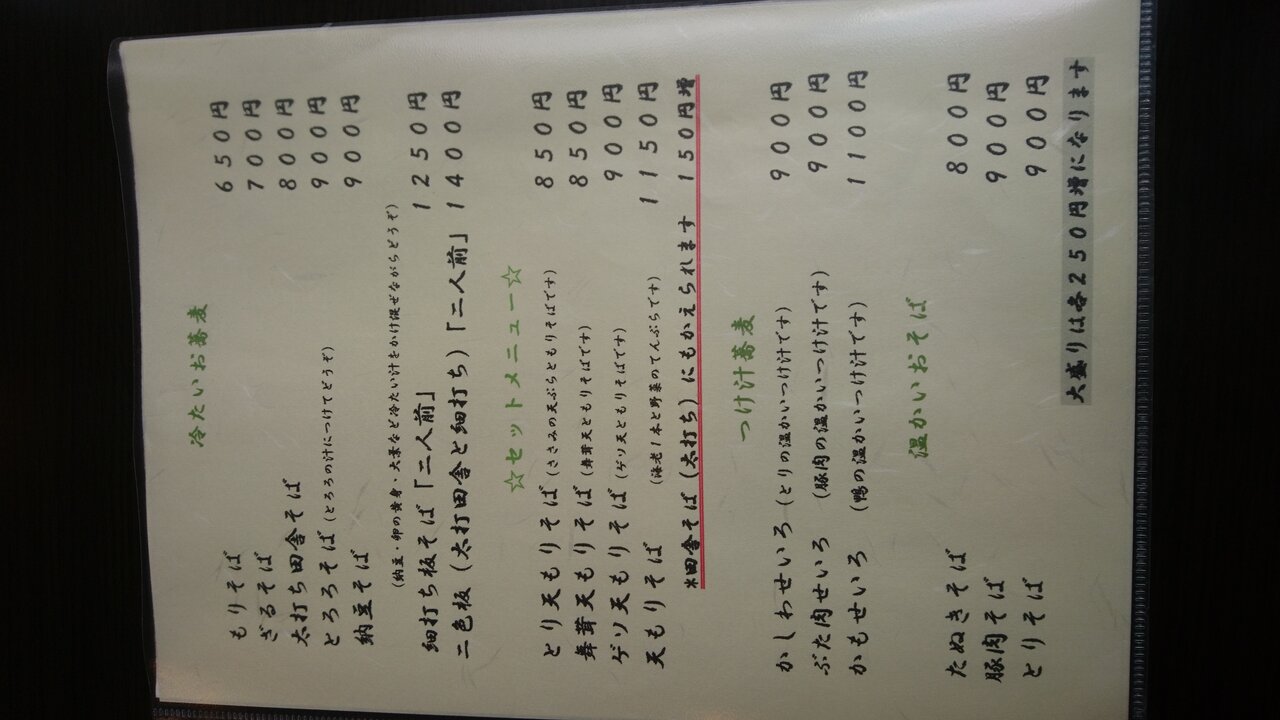 冷たいお蕎麦
もりそば 650円
ざるそば 700円
太打ち田舎そば 800円
とろろそば(とろろの汁につけてどうぞ) 900円
納豆そば 900円
(納豆・卵の黄身・大葉など冷たい汁をかけ混ぜながらどうぞ)
細打ち板そば「二人前」 1250円
二色板(太打田舎と細打ち)「二人前」 1400円
☆セットメニュー☆
とり天もりそば(ささみの天ぷらともりそばです) 850円
舞茸天もりそば(舞茸天ともりそばです) 850円
ゲソ天もりそば(ゲソ天ともりそばです) 900円
天もりそば (海老1本と野菜のてんぷらです) 1150円
*田舎そば(太打ち)にもかえられます 150円増
つけ汁蕎麦
かしわせいろ(とりの温かいつけ汁です) 900円
ぶた肉せいろ (豚肉の温かいつけ汁です) 900円
かもせいろ (鴨の温かいつけ汁です) 1100円
温かいおそば
たぬきそば 800円
豚肉そば 900円
とりそば 900円
大盛りは各250円増になります